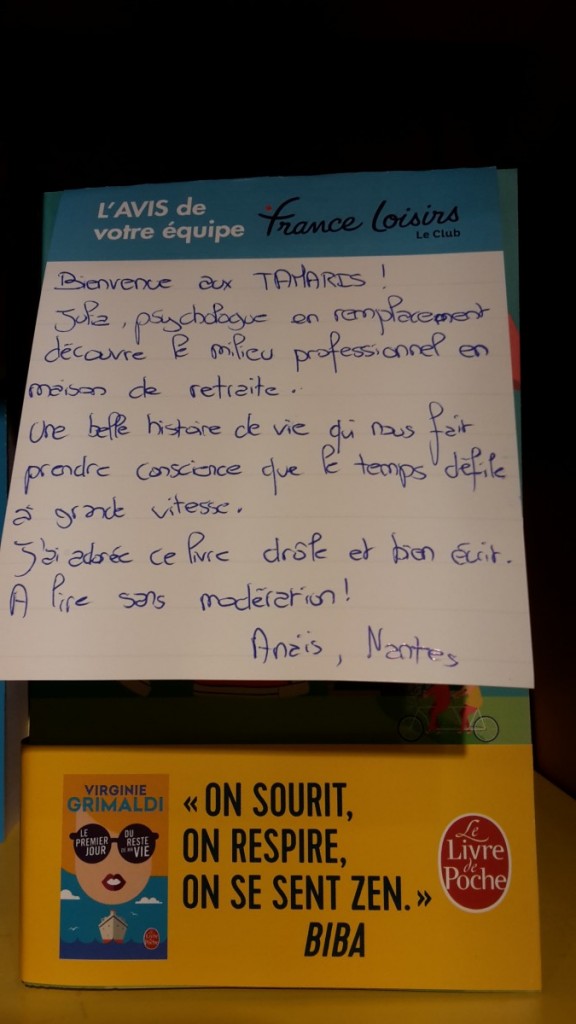 L'AVIS de
votre équipe
France Loisirs
Le Club
Bienvenue aux TAMARIS !
Julia, psychologue en remplacement
découvre le milieu professionnel en
maison de retraite.
Une belle histoire de vie qui nous fait
prendre conscience que le temps défile
à grande vitesse.
J'ai adorée ce livre drôle et bien écrit.
A lire sans modération !
Anaïs, Nantes
VIRGINIE
GRIMALDI
LE PREMIER JOUR
DU RESTE DE MA VIE
« ON SOURIT,
ON RESPIRE,
ON SE SENT ZEN. »
BIBA
Le
Livre
de
Poche